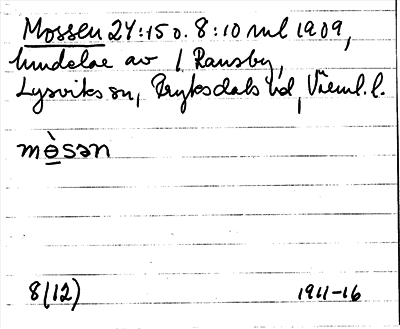 Mossen 24:15 o. 8:10 mtl 1909,
lundelar av / Ransby,
Lysviks sn, Fryksdals hd, Värml. l.
mòsən
8(12) 1911-16